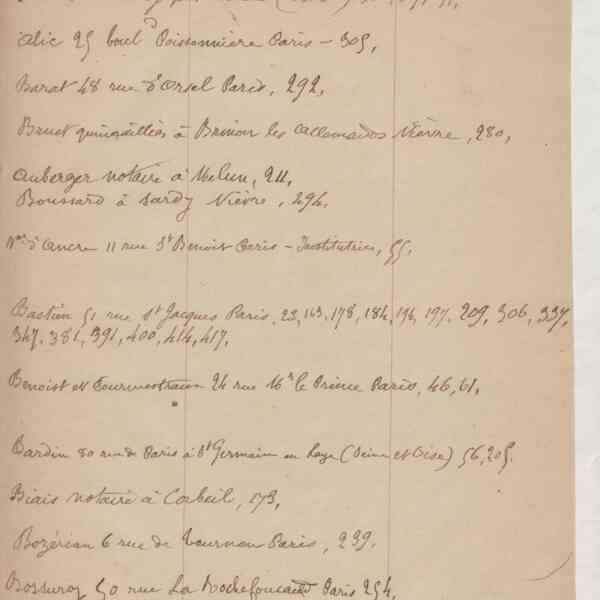 alic 25 boul d Poissonnière Paris – 305,
Barat 48 rue d'Orsel Paris, 292,
Bruet quinquillier à Brinon les allemands Nièvre, 280,
Auberger notaire à Melun, 211,
Boussard à Sardy Nièvre, 294,
d'Ancre 11 rue St Benoit Paris – Institutrice, 55,
Bastien 51 rue St Jacques Paris, 23, 163, 178, 184, 196, 197, 209, 306, 337,
347, 381, 391, 400, 414, 417,
Benoist et 24 rue Mr le Prince Paris, 46, 61,
Bardin 80 rue de Paris à St Germain en Laye (Seine et Oise) 56, 205.
Biais notaire à Corbeil, 173,
Bozérian 6 rue de Tournon Paris, 239,
50 rue La Rochefoucauld Paris 254,